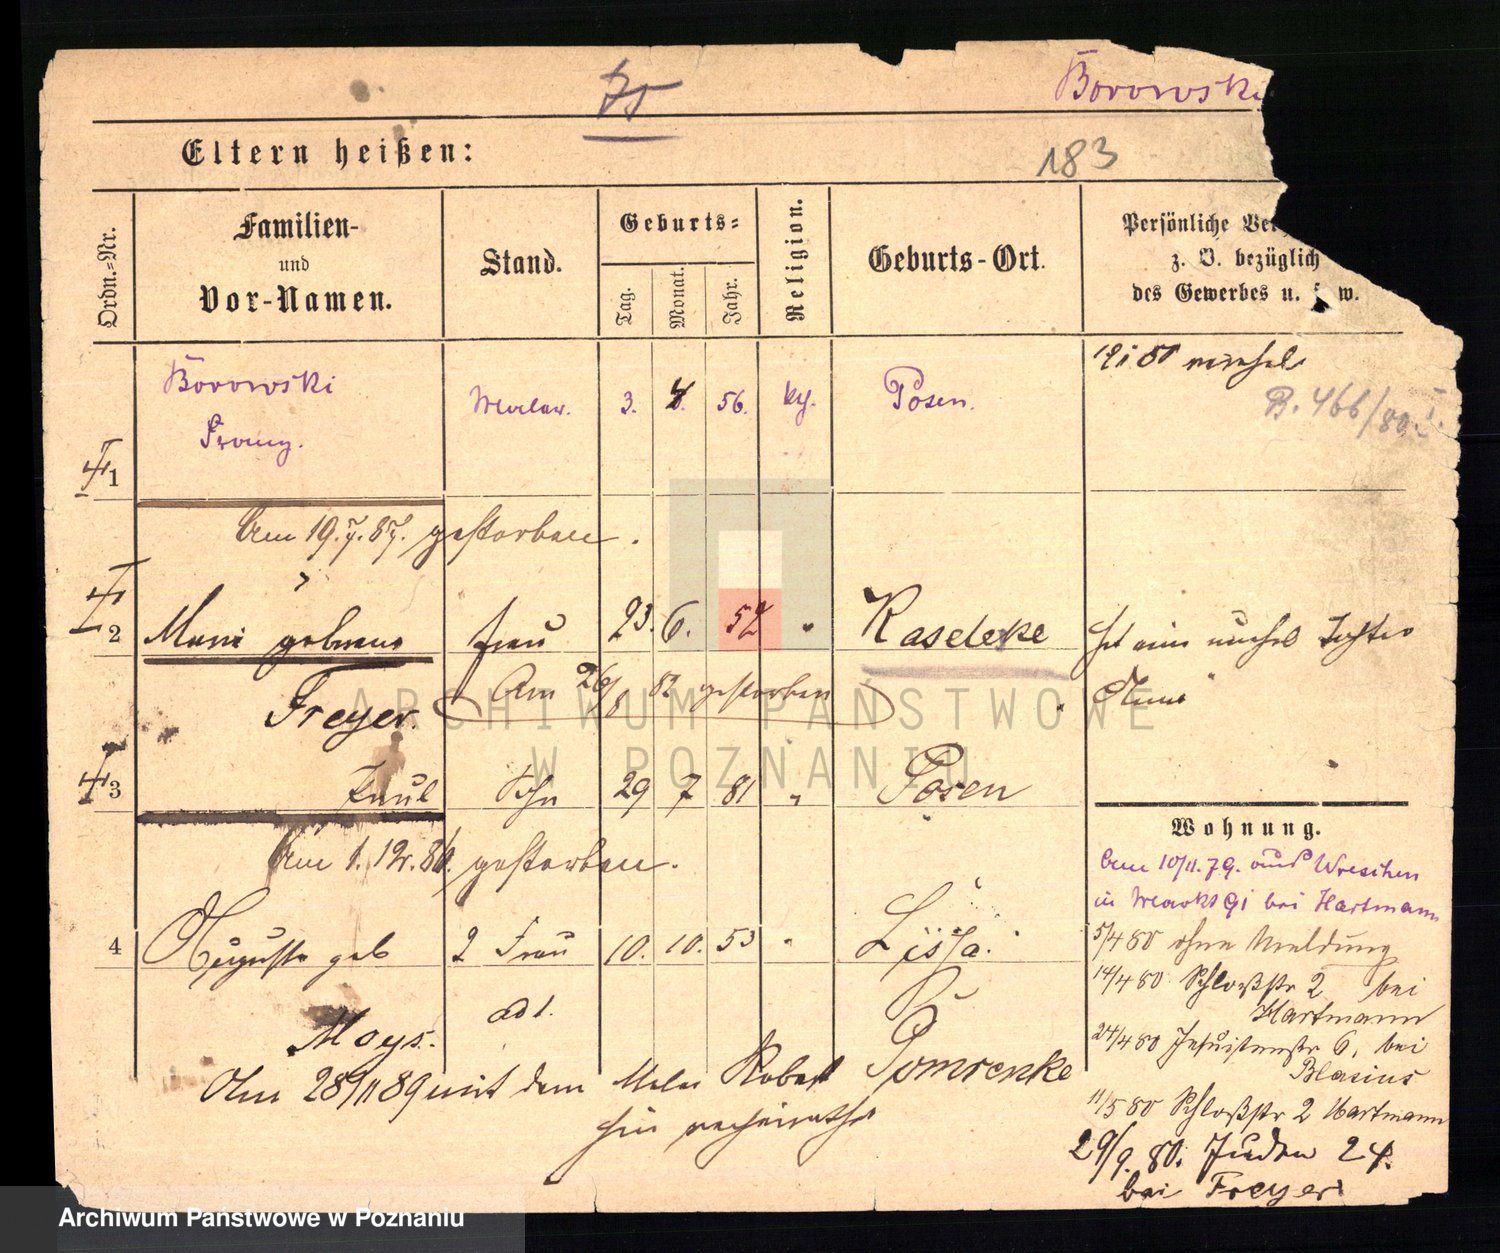 Borowski
Eltern heißen:
183
Ordn.-Nr.
Familien-
und
Vor-Namen.
Stand.
Geburts-
Tag.
Monat.
Jahr.
Religion.
Geburts-Ort.
Persönliche Ver
z. B. bezüglich
des Gewerbes u. s. w.
Borowski
Franz.
Maler.
3.
56.
kth.
Posen.
B. 466/80. I.
1
Am 19.7.87. gestorben.
2
Marie geborene
Frau
23.
6.
"
Kaselcke
hat eine unehel Tochter
Freyer.
Am 26/8 82 gestorben
3
Paul
Sohn
29
7
81
"
Posen
Am 1. 12. 86. gestorben.
4
Auguste geb
2 Frau
10.
10.
53
"
Lissa.
Moys.
ad 1.
Am 28/11 89 mit dem Maler Robert Pomrenke
hier verheirathet
Wohnung.
Am 10/11.79. aus Wreschen
in Markt 91 bei Hartmann
5/4 80 ohne Meldung
14/4 80 Schloßstr 2 bei
Hartmann
24/4 80 Jesuitenstr 6, bei
Blasius
11/5 80 Schloßstr 2 Hartmann
29/9. 80. Juden 24.
bei Freyer
ARCHIWUM PAŃSTWOWE
W POZNANIU
Archiwum Państwowe w Poznaniu